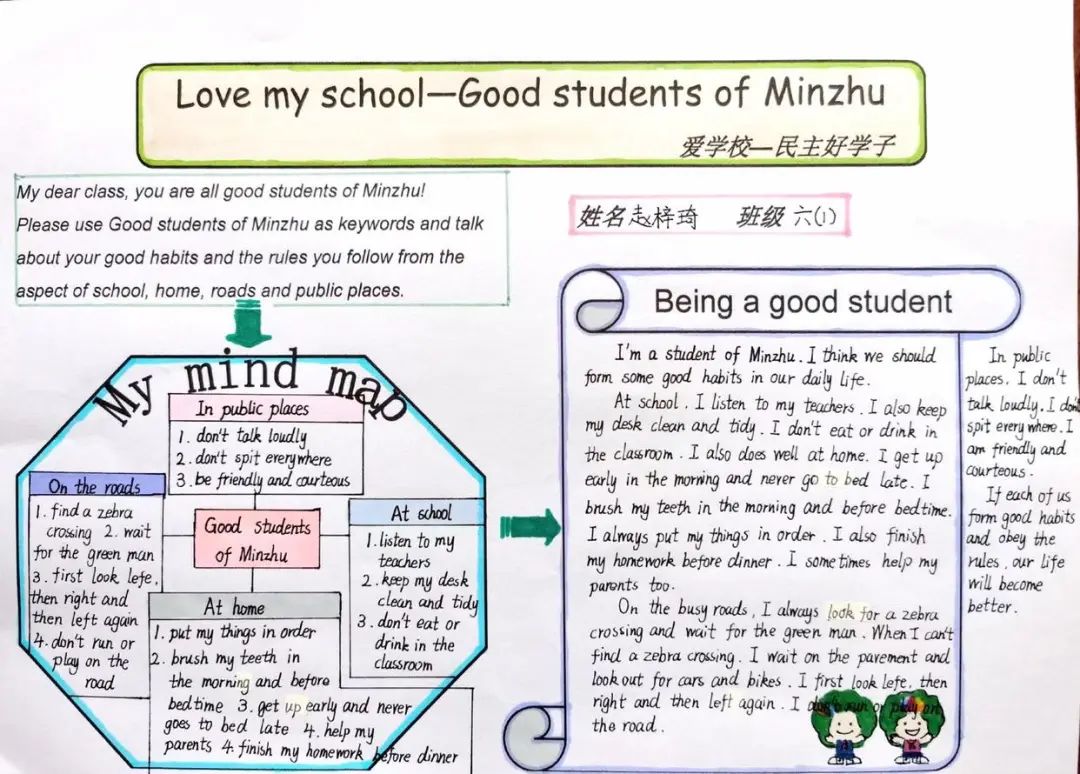 Love my school—Good students of Minzhu
爱学校—民主好学子
My dear class, you are all good students of Minzhu!
Please use Good students of Minzhu as keywords and talk
about your good habits and the rules you follow from the
aspect of school, home, roads and public places.
姓名 赵梓琦 班级 六(1)
My mind map
In public places
1. don't talk loudly
2. don't spit everywhere
3. be friendly and courteous
On the roads
1. find a zebra
crossing 2. wait
for the green man
3. first look lefe,
then right and
then left again
4. don't run or
play on the
road
Good students
of Minzhu
At school
1. listen to my
teachers
2. keep my desk
clean and tidy
3. don't eat or
drink in the
classroom
At home
1. put my things in order
2. brush my teeth in
the morning and before
bedtime 3. get up early and never
goes to bed late 4. help my
parents 4. finish my homework before dinner
Being a good student
I'm a student of Minzhu. I think we should
form some good habits in our daily life.
At school, I listen to my teachers. I also keep
my desk clean and tidy. I don't eat or drink in
the classroom. I also does well at home. I get up
early in the morning and never go to bed late. I
brush my teeth in the morning and before bedtime.
I always put my things in order. I also finish
my homework before dinner. I sometimes help my
parents too.
On the busy roads, I always look for a zebra
crossing and wait for the green man. When I can't
find a zebra crossing. I wait on the pavement and
look out for cars and bikes. I first look lefe, then
right and then left again. I don't run or play on
the road.
In public
places, I don't
talk loudly. I don't
spit everywhere. I
am friendly and
courteous.
If each of us
form good habits
and obey the
rules, our life
will become
better.